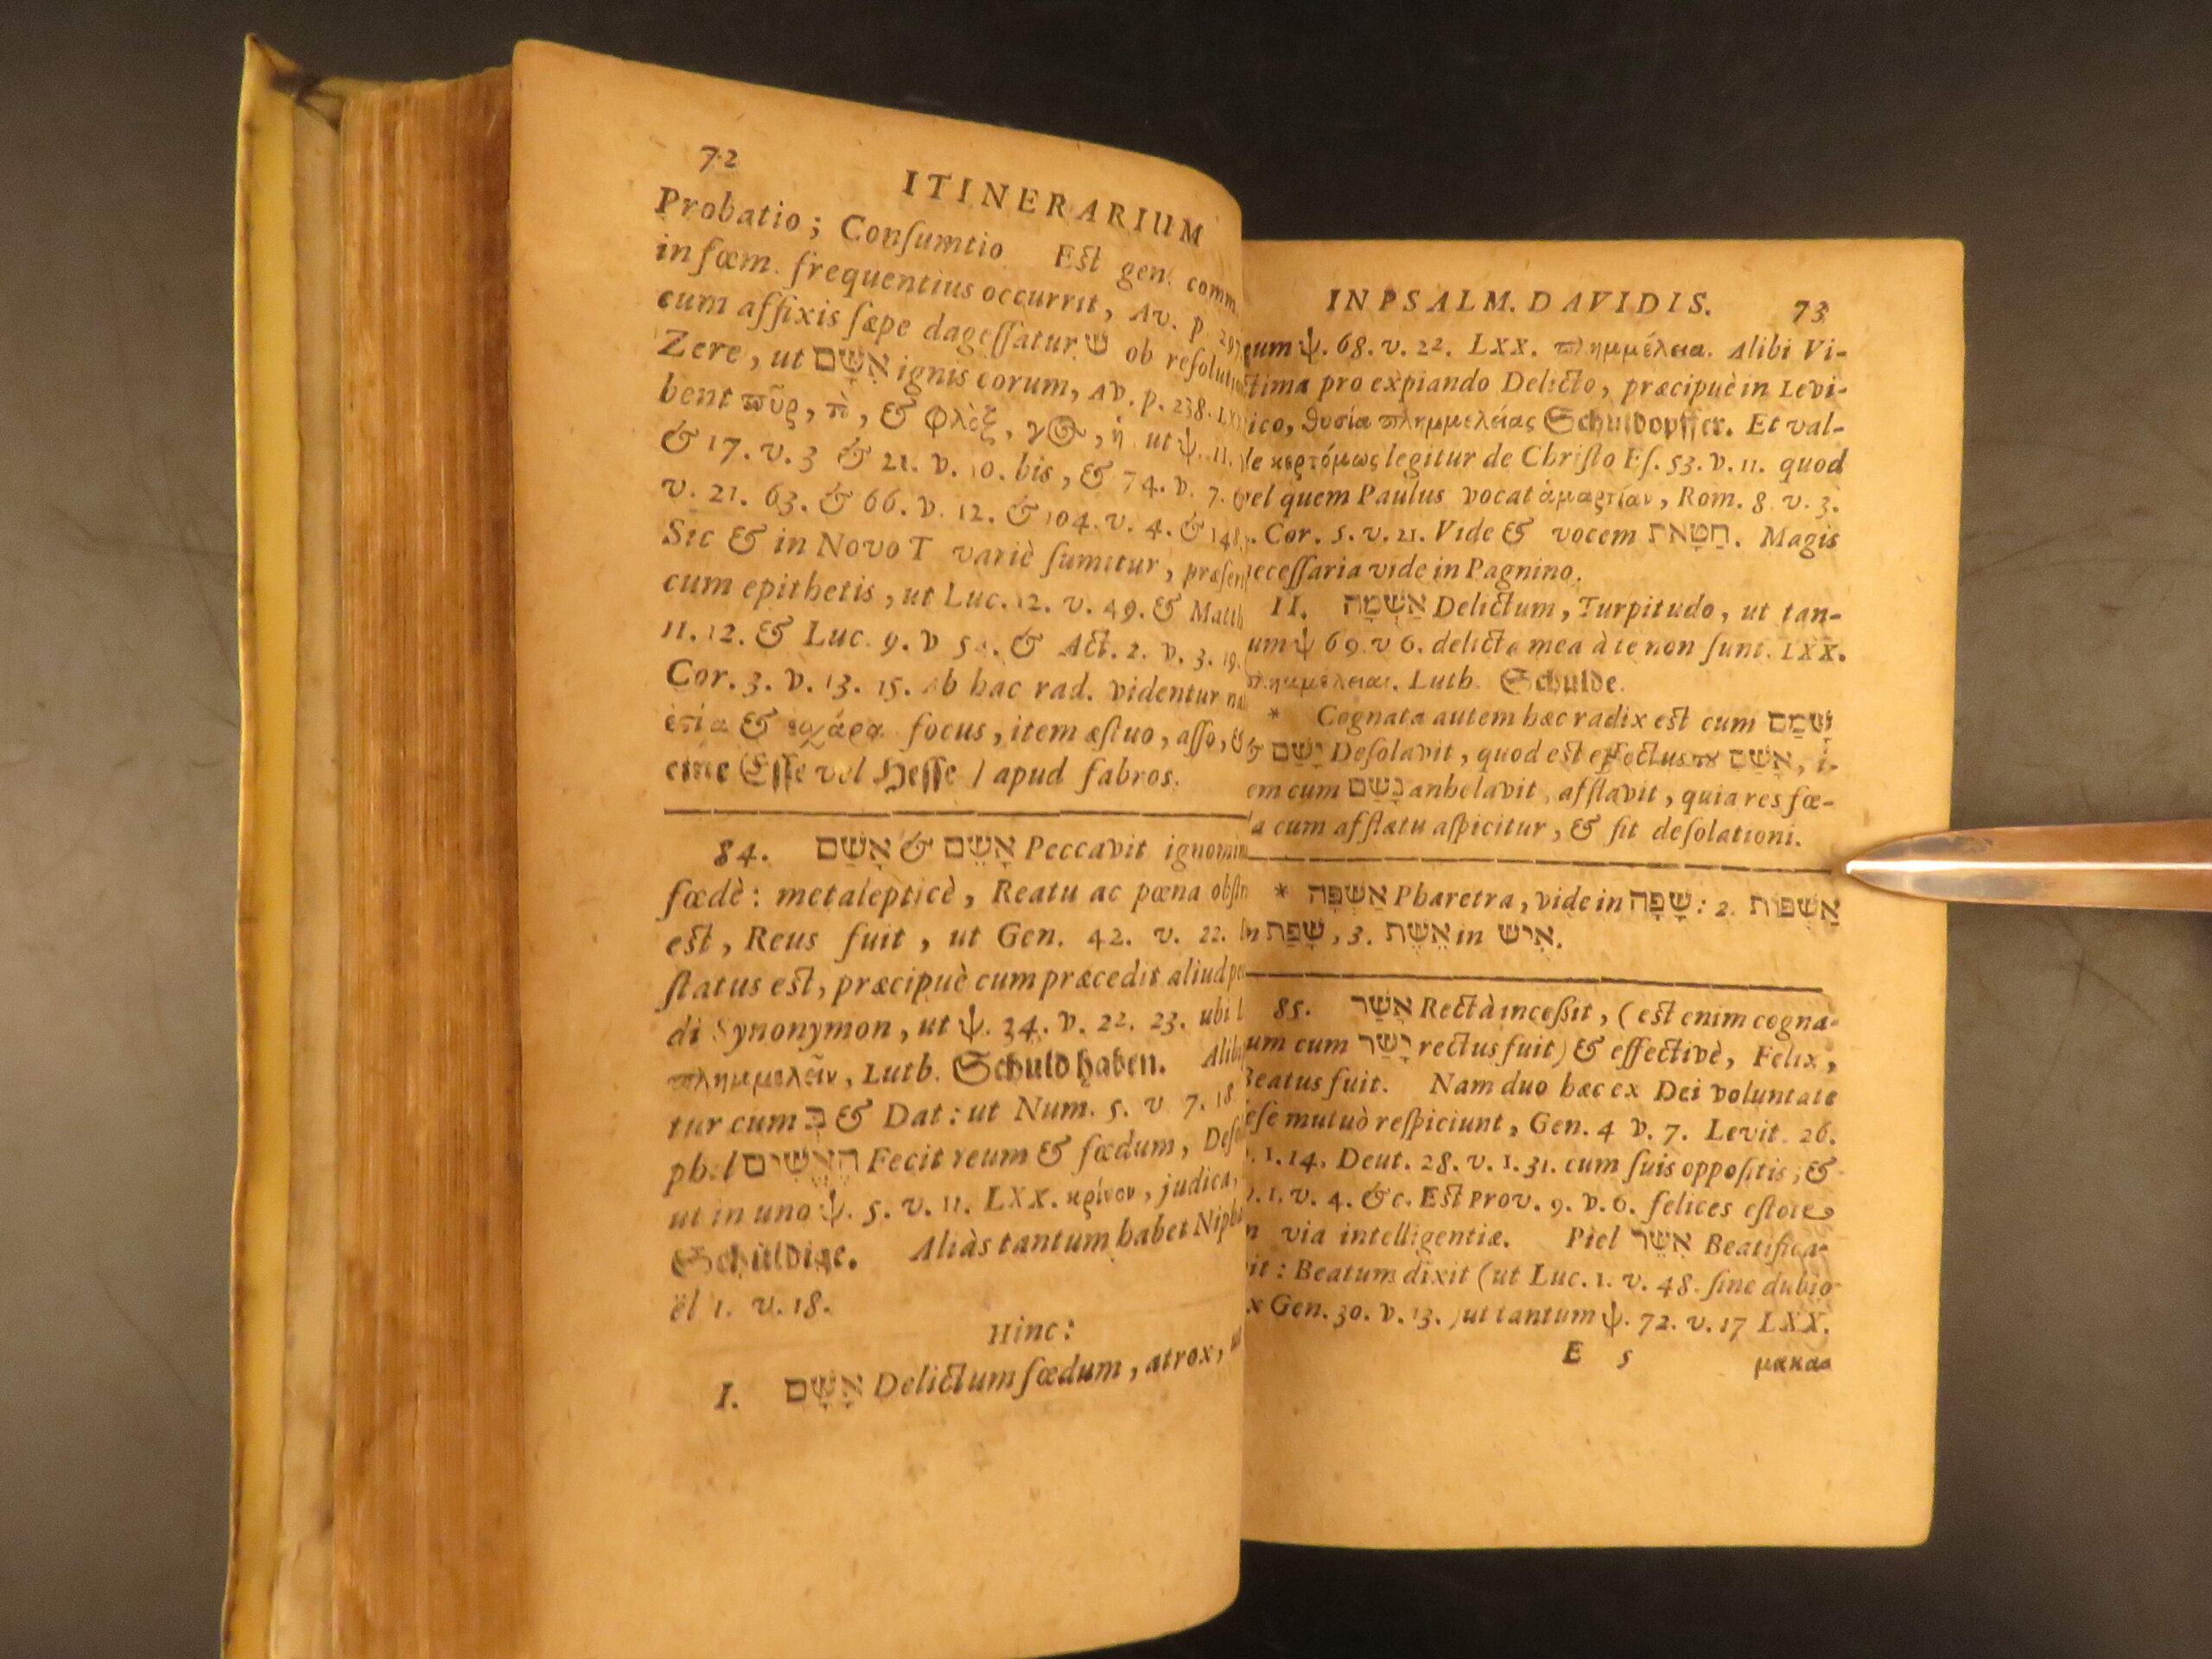 72
ITINERARIUM
Probatio; Conſumtio Eſt gen. comm.
in fœm. frequentius occurrit, Av. p.
cum affixis ſæpe dageſſatur שׁ ob reſoluti
Zere, ut אִשָּׁם ignis eorum, Av. p. 238.
bent πῦρ, τὸ, & φλὸξ, γος, ἡ ut ψ. 11.
& 17. v. 3 & 21. v. 10. bis, & 74. v. 7.
v. 21. 63. & 66. v. 12. & 104. v. 4. & 148.
Sic & in Novo T variè ſumitur, præſer
cum epithetis, ut Luc. 12. v. 49. & Matth
11. 12. & Luc. 9. v & Act. 2. v. 3. 19.
Cor. 3. v. 13. 15. ab hac rad. videntur
ἑστία & ἐσχάρα focus, item æſtuo, aſſo,
eine Eſſe vel Heſſe / apud fabros.
84. אָשַׁם & אָשֵׁם Peccavit ignomin
fœdè: metalepticè, Reatu ac pœna obſtr
eſt, Reus fuit, ut Gen. 42. v. 22.
ſtatus eſt, præcipuè cum præcedit aliud
di Synonymon, ut ψ. 34. v. 22. 23. ubi
πλημμελεῖν, Luth. Schuld haben. Alib
tur cum בְּ & Dat: ut Num. 5. v 7. 18.
ph. הֶאֱשִׁים Fecit reum & fœdum,
ut in uno ψ. 5. v. 11. LXX. κρῖνον, judica,
Schüldige. Aliàs tantum habet Niph
ël 1. v. 18.
Hinc:
I. אָשָׁם Delictum fœdum, atrox,
IN PSALM. DAVIDIS. 73
um ψ. 68. v. 22. LXX. πλημμέλεια. Alibi Vi-
ctima pro expiando Delicto, præcipuè in Levi-
ico, θυσία πλημμελείας Schuldopffer. Et val-
de κερτόμως legitur de Chriſto Eſ. 53. v. 11. quod
vel quem Paulus vocat ἁμαρτίαν, Rom. 8. v. 3.
. Cor. 5. v. 21. Vide & vocem חַטָּאת. Magis
neceſſaria vide in Pagnino.
II. אַשְׁמָה Delictum, Turpitudo, ut tan-
um ψ 69. v 6. delicta mea à te non ſunt. LXX.
πλημμέλειαι. Luth. Schulde.
* Cognata autem hæc radix eſt cum שָׁמַם
& יָשַׁם Deſolavit, quod eſt effectus τοῦ אָשַׁם, i-
em cum נָשַׁם anhelavit, afflavit, quia res fœ-
a cum afflatu aſpicitur, & fit deſolationi.
* אַשְׁפָּה Pharetra, vide in שָׁפָה: 2. אַשְׁפּוֹת
in שָׁפַת, 3. אֵשֶׁת in אִישׁ.
85. אָשַׁר Rectà inceſſit, (eſt enim cogna-
um cum יָשַׁר rectus fuit) & effectivè, Felix,
Beatus fuit. Nam duo hæc ex Dei voluntate
eſe mutuò reſpiciunt, Gen. 4 v. 7. Levit. 26.
. 1. 14. Deut. 28. v. 1. 31. cum ſuis oppoſitis, &
. 1. v. 4. &c. Eſt Prov. 9. v. 6. felices eſtote
n via intelligentiæ. Piel אִשֵּׁר Beatifica-
it: Beatum dixit (ut Luc. 1. v. 48. ſine dubio
x Gen. 30. v. 13.) ut tantum ψ. 72. v. 17 LXX.
E 5 μακα